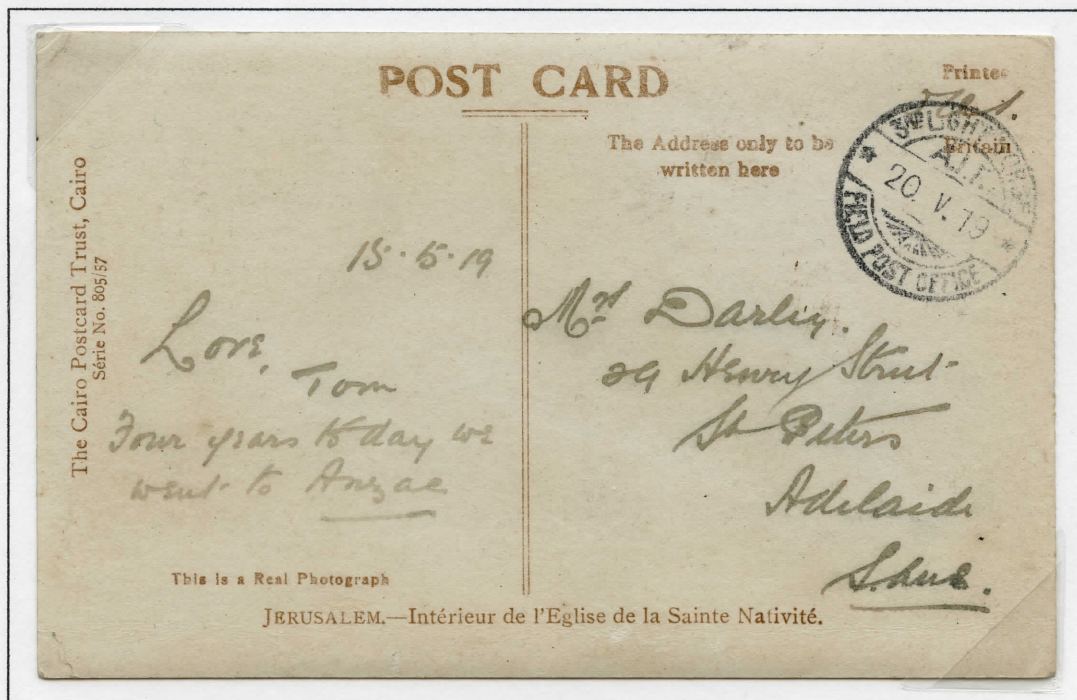 POST CARD
Printed
Britain
The Address only to be
written here
3RD LIGHT HORSE
A.I.F.
20. V. 19
FIELD POST OFFICE
The Cairo Postcard Trust, Cairo
Série No. 805/57
15.5.19
Love,
Tom
Four years to day we
went to Anzac
Mrs Darley.
29 Henry Street
St Peters
Adelaide
S. Aus.
This is a Real Photograph
JERUSALEM.—Intérieur de l'Eglise de la Sainte Nativité.